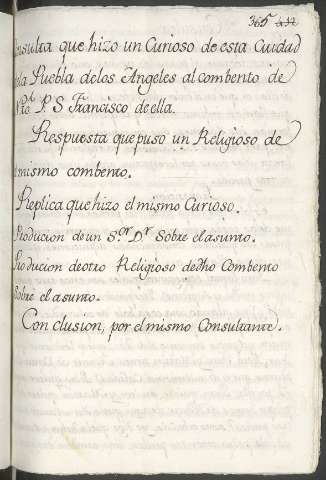 365
Consulta que hizo un Curioso de esta Ciudad
de la Puebla de los Angeles al combento de
N. P. S Francisco de ella.
Respuesta que puso un Religioso de
el mismo combento.
Replica que hizo el mismo Curioso.
Producion de un S.or D.r Sobre el asunto.
Producion de otro Religioso de dho Combento
Sobre el asunto.
Conclusion, por el mismo Consultante.